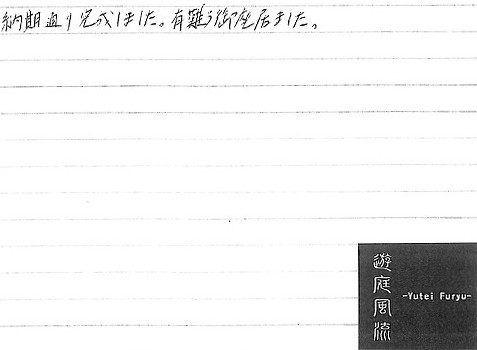 納期通り完成しました。有難う御座居ました。
遊庭風流
-Yutei Furyu-